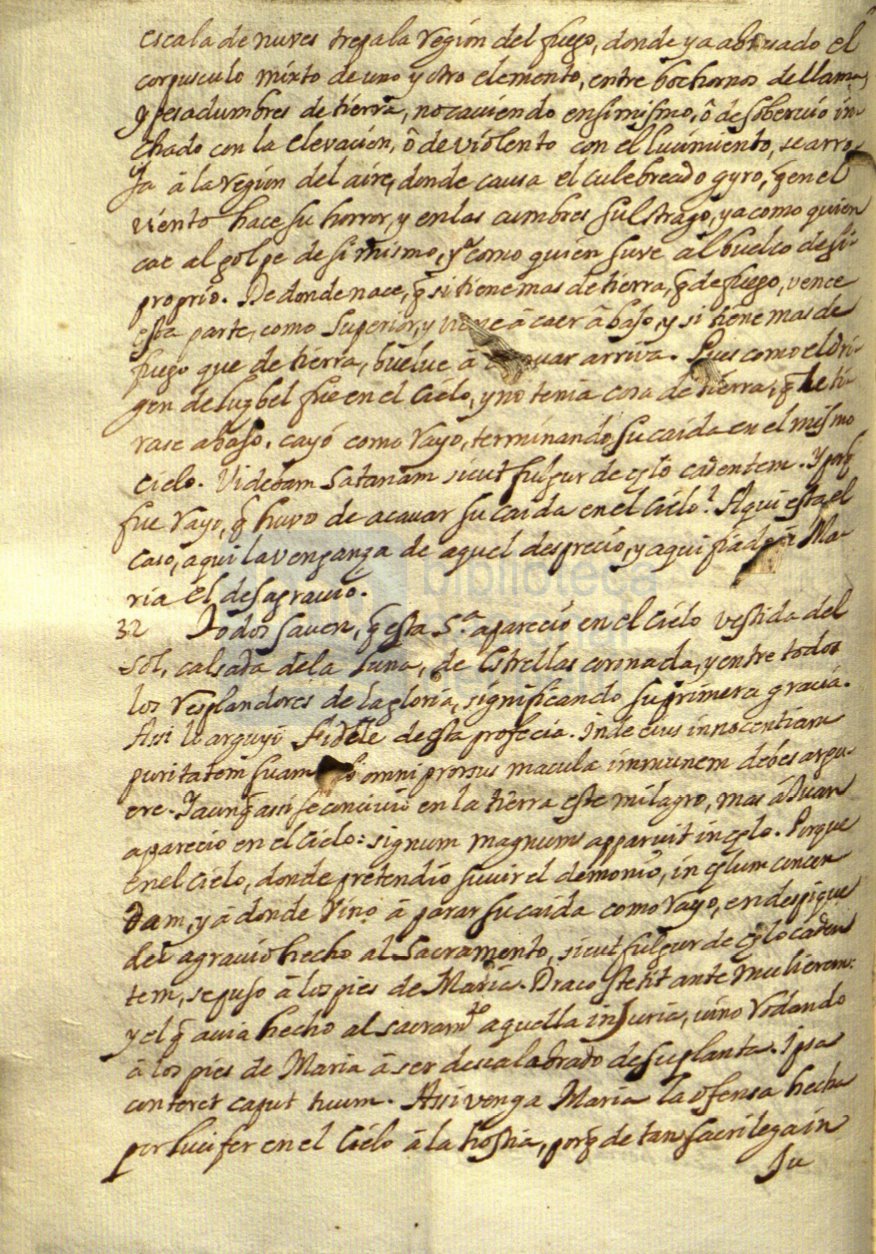 escala de nuves trepa la región del fuego, donde ya abrasado el
corpusculo mixto de uno y otro elemento, entre bochornos de llamas,
y pesadumbres de tierra, no caviendo en si mismo, ô de sobervio in-
chado con la elevación, ô de violento con el lucimiento, se arro-
ja â la región del aire, donde causa el culebreado gyro, q̃ en el
viento hace su horror, y en las cumbres su estrago, ya como quien
cae al golpe de si mismo, ya como quien suve al buelco de si
proprio. De donde nace, q̃ si tiene mas de tierra, q̃ de fuego, vence
esta parte, como superior, y viene â caer â bajo, y si tiene mas de
fuego que de tierra, buelve â arriva. Pues como el ori-
gen de Luzbel fue en el Cielo, y no tenia cosa de tierra, q̃ le ti-
rase abajo, cayó como rayo, terminando su caida en el mismo
cielo. Videbam Satanam sicut fulgur de cęlo cadentem. Y porq̃
fue rayo, q̃ huvo de acavar su caida en el Cielo? Aqui esta el
caso, aqui la venganza de aquel desprecio, y aqui â Ma-
ria el desagravio.
32 Todos saven, q̃ esta S.ª apareció en el Cielo vestida del
sol, calsada de la luna, de estrellas coronada, y entre todos
los resplandores de la gloria, significando su primera gracia.
Assi lo arguyi Fidele de esta profecia. Inde eius innocentiam
puritatem suam omni prorsus macula immunem debes argu-
ere. Y aunq̃ assi se conciviò en la tierra este milagro, mas â Juan
apareció en el Cielo: signum magnum apparuit in cęlo. Porque
en el Cielo, donde pretendió suvir el demonio, in cęlum concen-
dam, y â donde vino â parar su caida como rayo, en despique
del agravio hecho al Sacramento, sicut fulgur de cęlo caden-
tem, se puso â los pies de Maria. Draco stetit ante mulierem:
y el q̃ avia hecho al sacram.to aquella injuria, vino rodando
â los pies de Maria â ser descalabrado de su planta. Ipsa
conteret caput tuum. Assi venga Maria la ofensa hecha
por Lucifer en el Cielo â la hostia, porq̃ de tan sacrilega in
ju